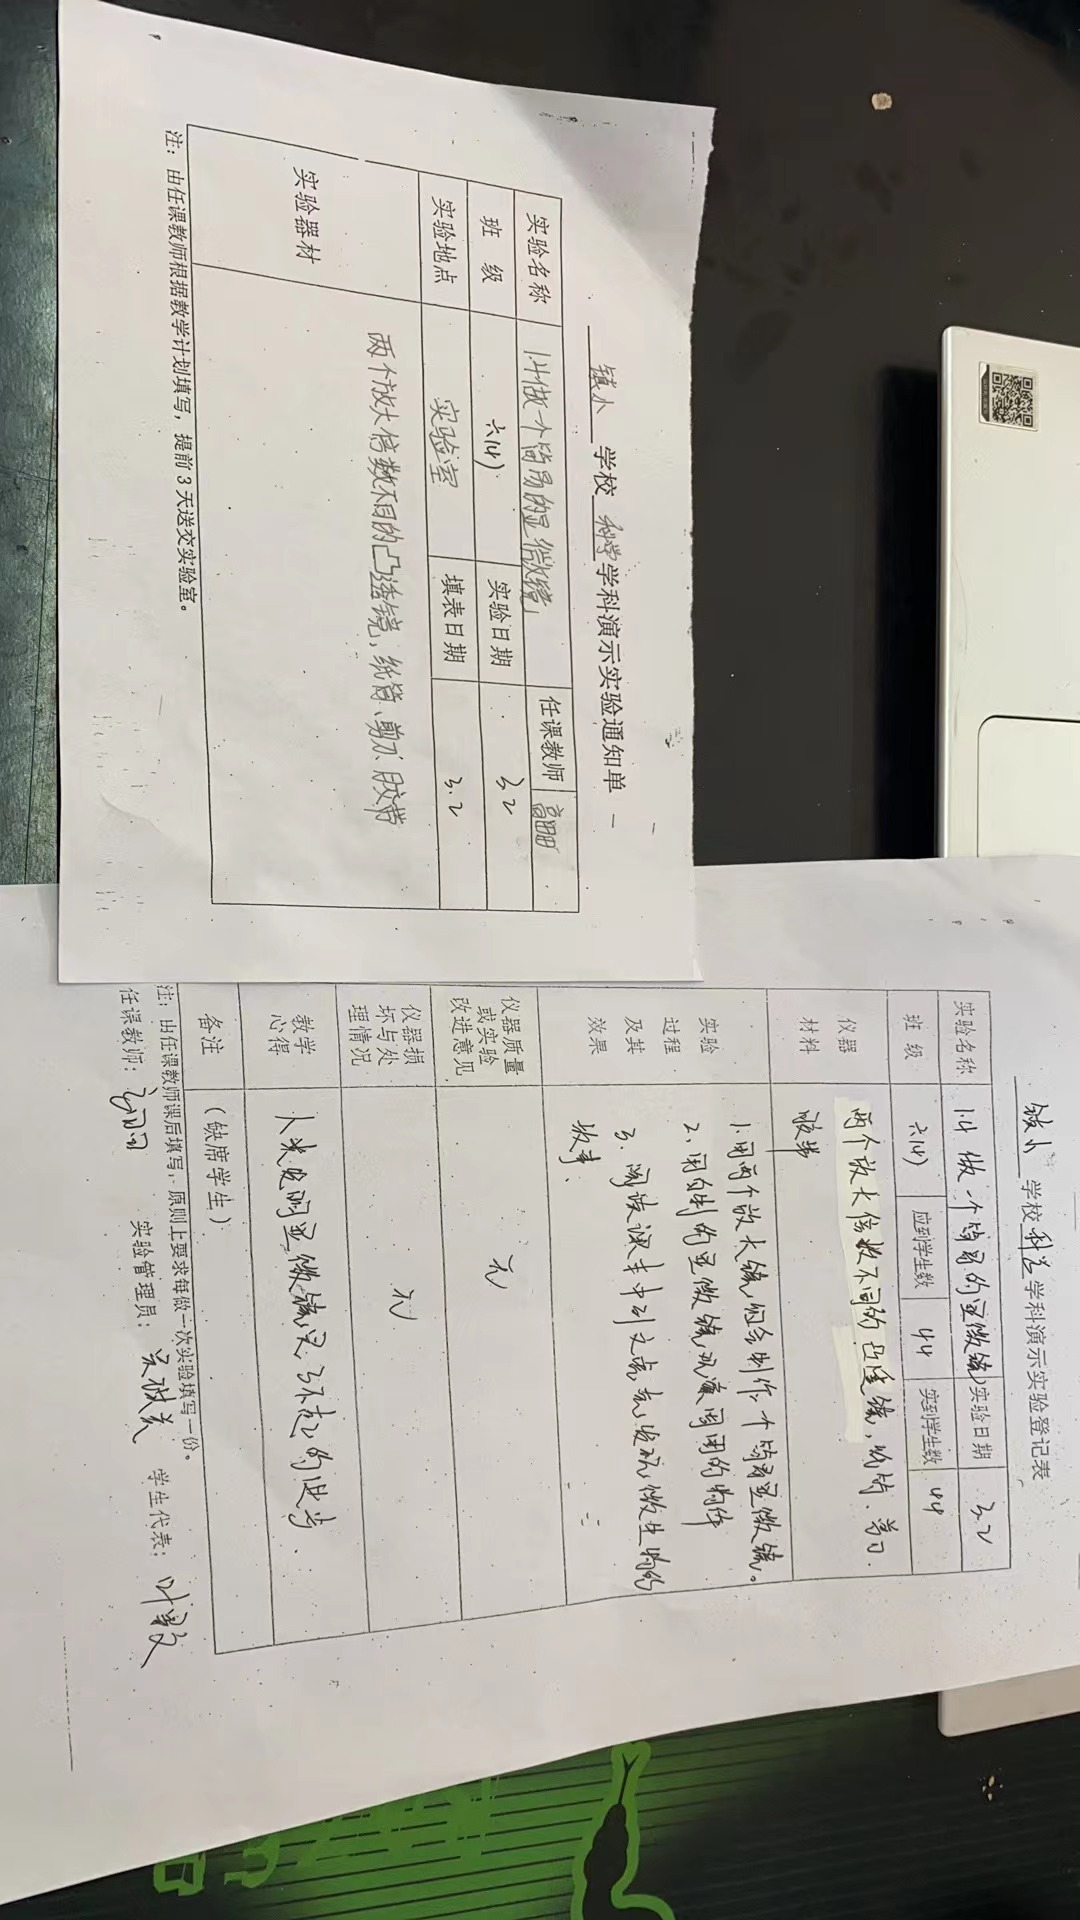 镇小 学校 科学 学科演示实验通知单
实验名称 1.4做一个简易的显微镜 任课教师
班 级 六(4) 实验日期 3.2
实验地点 实验室 填表日期 3.2
实验器材 两个放大倍数不同的凸透镜,纸筒、剪刀、胶带
注:由任课教师根据教学计划填写,提前3天送交实验室。
镇小 学校 科学 学科演示实验登记表
实验名称 1.4 做一个简易的显微镜 实验日期 3.2
班 级 六(4) 应到学生数 44 实到学生数 44
仪器 两个放大倍数不同的凸透镜,纸筒、剪刀、
材料 胶带
实验 1.用两个放大镜,组合制作一个简易显微镜。
过程 2.用自制的显微镜观察周围的物体
及其 3.阅读课本中列文虎克发现微生物的
效果 故事.
仪器质量
或实验 无
改进意见
仪器损
坏与处 无
理情况
教学 人类发明显微镜是了不起的进步.
心得
备注 (缺席学生)
注:由任课教师课后填写,原则上要求每做一次实验填写一份。
任课教师: 实验管理员: 学生代表: